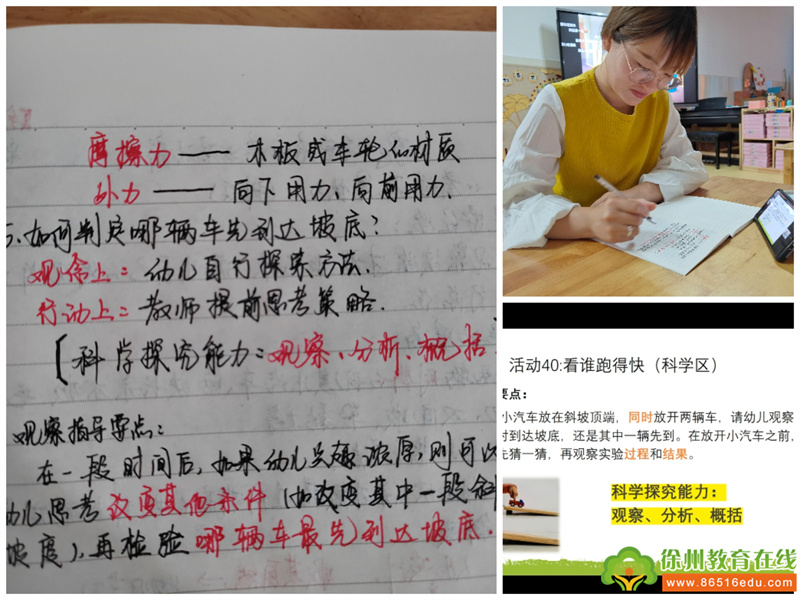 摩擦力——木板或车轮的材质
外力——向下用力、向前用力.
5.如何判定哪辆车先到达坡底?
观念上:幼儿自行探索方法.
行动上:教师提前思考策略.
[科学探究能力:观察、分析、概括
观察指导要点:
在一段时间后,如果幼儿兴趣浓厚,则可以
幼儿思考改变其他条件(如改变其中一段斜
坡度),再检验哪辆车最先到达坡底.
活动40:看谁跑得快(科学区)
要点:
小汽车放在斜坡顶端,同时放开两辆车,请幼儿观察
时到达坡底,还是其中一辆先到。在放开小汽车之前,
先猜一猜,再观察实验过程和结果。
科学探究能力:
观察、分析、概括
徐州教育在线
www.86516edu.com